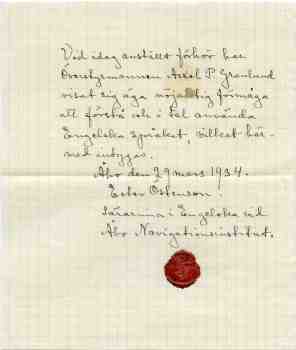 Vid idag anställt förhör har
Överstyrmannen Axel P. Granlund
visat sig äga nöjaktig förmåga
att förstå och i tal använda
Engelska språket, vilket här-
med intygas.
Åbo den 29 mars 1934.
Ester Ostenson.
Lärarinna i Engelska vid
Åbo Navigationsinstitut.